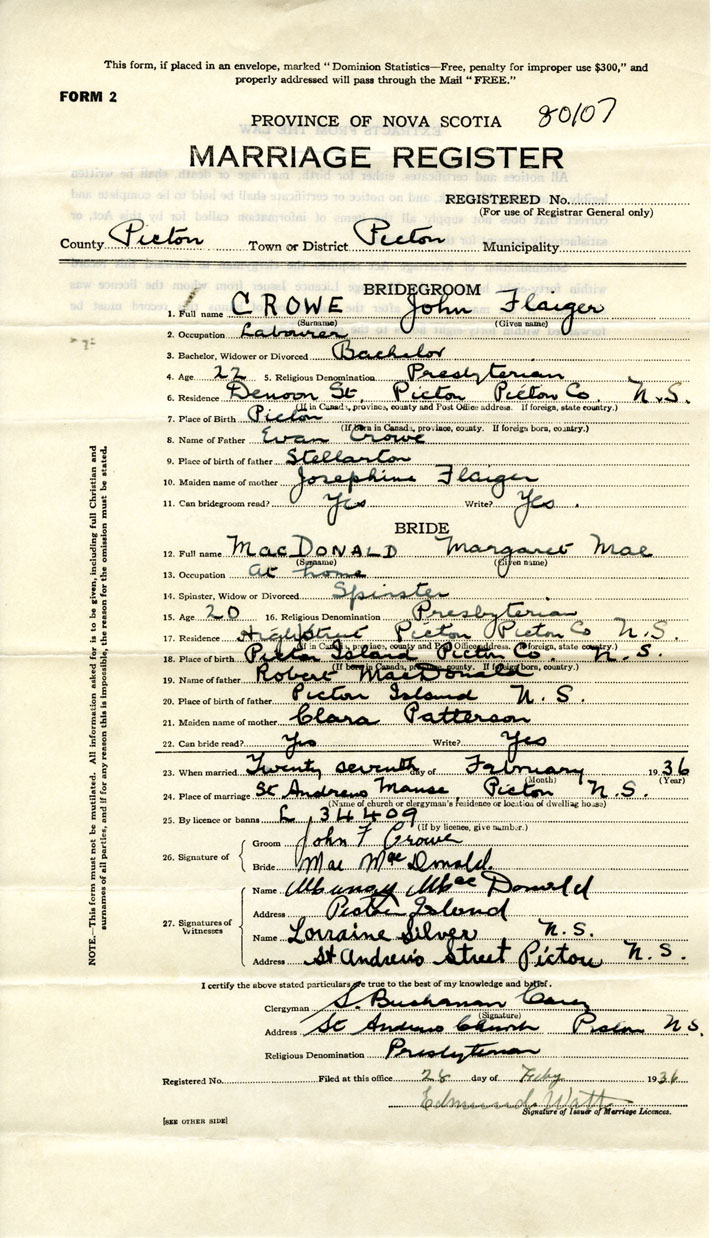 This form, if placed in an envelope, marked "Dominion Statistics—Free, penalty for improper use $300," and
properly addressed will pass through the Mail "FREE."
FORM 2
80107
PROVINCE OF NOVA SCOTIA
MARRIAGE REGISTER
REGISTERED No.
(For use of Registrar General only)
County Pictou Town or District Pictou Municipality
BRIDEGROOM
1. Full name CROWE John Flaiger
(Surname) (Given name)
2. Occupation Labourer
3. Bachelor, Widower or Divorced Bachelor
4. Age 22 5. Religious Denomination Presbyterian
6. Residence Denoon St, Pictou Pictou Co. N.S.
(If in Canada, province, county and Post Office address. If foreign, state country.)
7. Place of Birth Pictou
(If born in Canada, province, county. If foreign born, country.)
8. Name of Father Evan Crowe
9. Place of birth of father Stellarton
10. Maiden name of mother Josephine Flaiger
11. Can bridegroom read? Yes Write? Yes.
BRIDE
12. Full name MacDONALD Margaret Mae
(Surname) (Given name)
13. Occupation At home
14. Spinster, Widow or Divorced Spinster
15. Age 20 16. Religious Denomination Presbyterian
17. Residence High Street Pictou Pictou Co N.S.
(If in Canada, province, county and Post Office address. If foreign, state country.)
18. Place of birth Pictou Island Pictou Co. N.S.
(If born in Canada, province, county. If foreign born, country.)
19. Name of father Robert MacDonald
20. Place of birth of father Pictou Island N.S.
21. Maiden name of mother Clara Patterson
22. Can bride read? Yes Write? Yes
23. When married Twenty seventh day of February 1936
(Month) (Year)
24. Place of marriage St Andrews Manse, Pictou N.S.
(Name of church or clergyman's residence or location of dwelling house)
25. By licence or banns L 34409
(If by licence, give number.)
26. Signature of
Groom John F Crowe
Bride Mae MacDonald
27. Signatures of Witnesses
Name MacDonald
Address Pictou Island
Name Lorraine Silver N.S.
Address St Andrew's Street Pictou N.S.
I certify the above stated particulars are true to the best of my knowledge and belief.
Clergyman S. Buchanan Carey
(Signature)
Address St Andrews Church Pictou N.S.
Religious Denomination Presbyterian
Registered No. Filed at this office 28 day of Feby 1936
Edmund Watt
Signature of Issuer of Marriage Licences.
[SEE OTHER SIDE]
NOTE.—This form must not be mutilated. All information asked for is to be given, including full Christian and
surnames of all parties, and if for any reason this is impossible, the reason for the omission must be stated.